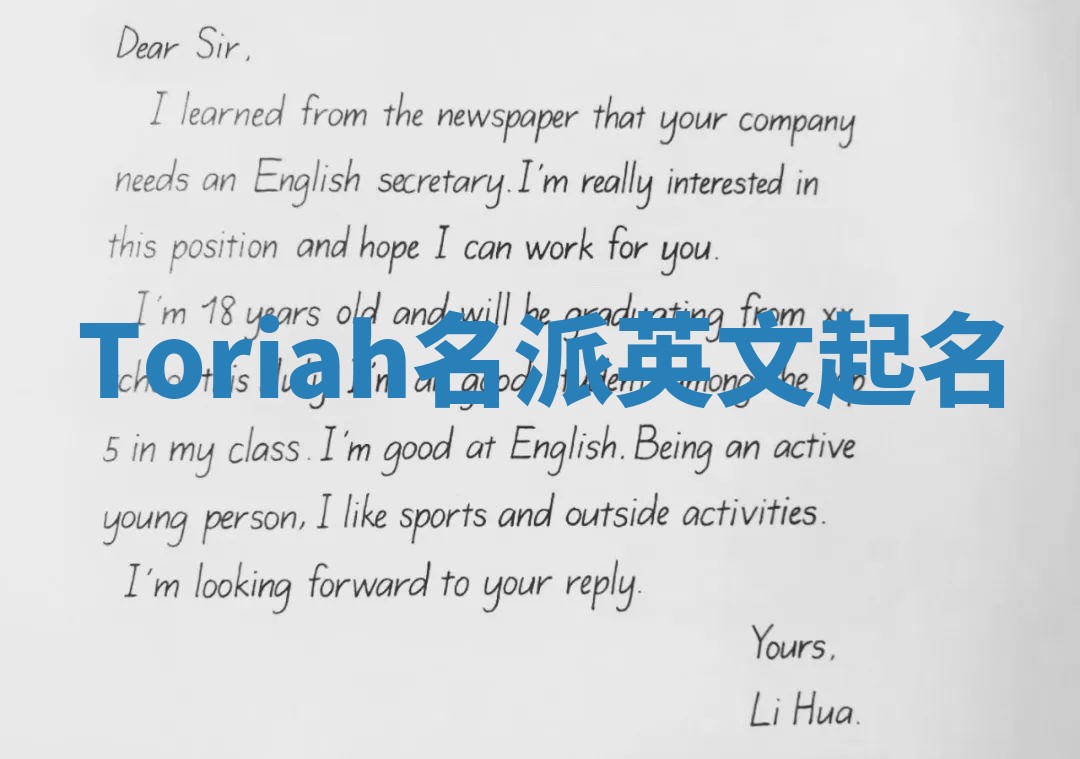 Dear Sir,
I learned from the newspaper that your company
needs an English secretary. I'm really interested in
this position and hope I can work for you.
I'm 18 years old and will be graduating from xx
Toriah名派英文起名
this July. I'm a good student among the top
5 in my class. I'm good at English. Being an active
young person, I like sports and outside activities.
I'm looking forward to your reply.
Yours,
Li Hua.